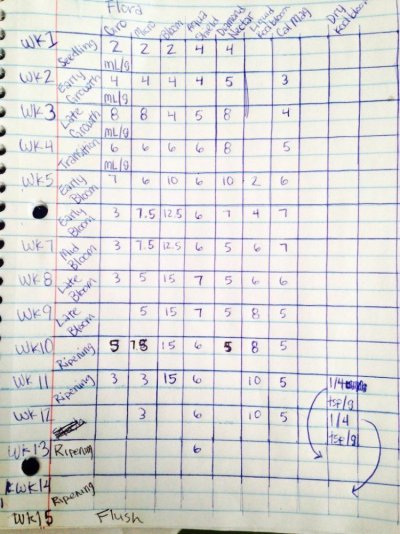 Flora
Gro Micro Bloom Aqua Shield Diamond Nectar Liquid Koolbloom Cal Mag Dry Koolbloom
WK1 Seedling 2 2 2 4 4
mL/g
WK2 Early Growth 4 4 4 4 5 3
mL/g
WK3 Late Growth 8 8 4 5 8 4
mL/g
WK4 Transition 6 6 6 6 8 5
mL/g
WK5 Early Bloom 7 6 10 6 10 2 6
Early Bloom 3 7.5 12.5 6 7 4 7
WK7 Mid Bloom 3 7.5 12.5 6 5 6 7
WK8 Late Bloom 3 5 15 7 5 6 6
WK9 Late Bloom 5 15 7 5 8 5
WK10 Ripening 5 15 6 5 8 5
WK11 Ripening 3 3 15 6 10 5 1/4
tsp/g
WK12 3 6 10 5 1/4
tsp/g
WK13 Ripening 6
WK14 Ripening
WK15 Flush